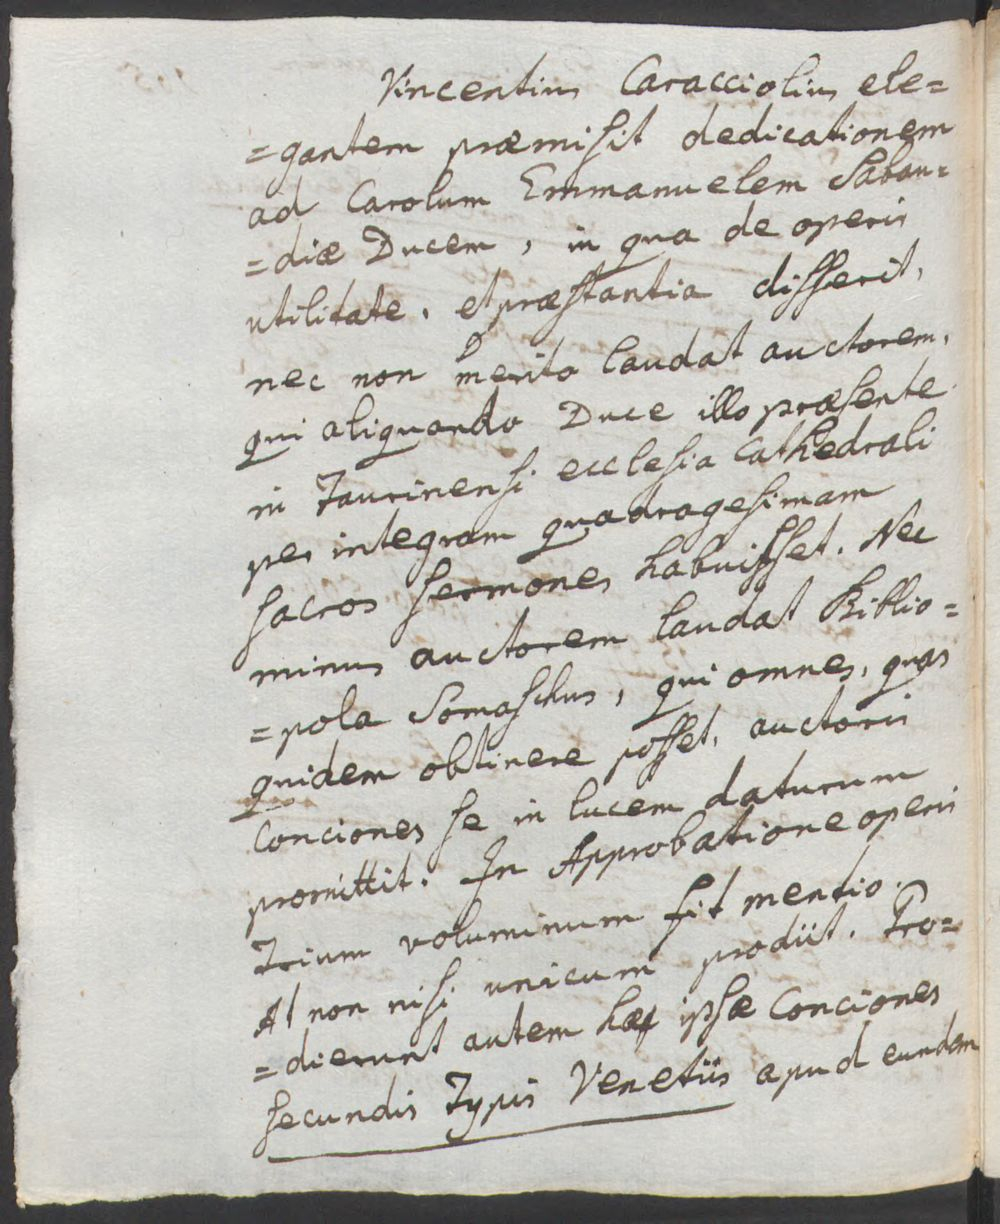 Vincentius Caracciolius ele=
=gantem præmisit dedicationem
ad Carolum Emmanuelem Sabau=
=diæ Ducem, in qua de operis
utilitate, et præstantia disserit,
nec non merito laudat auctorem,
qui aliquando Duce illo præsente
in Taurinensi ecclesia Cathedrali
per integram quadragesimam
sacros sermones habuisset. Nec
minus auctorem laudat Biblio=
=pola Somaschus, qui omnes, quas
quidem obtinere posset, auctoris
Conciones se in lucem daturum
promittit. In Approbatione operis
Trium voluminum fit mentio.
At non nisi unicum prodiit. Pro=
=dierunt autem hæ ipsæ Conciones
secundis Typis Venetiis apud eundem